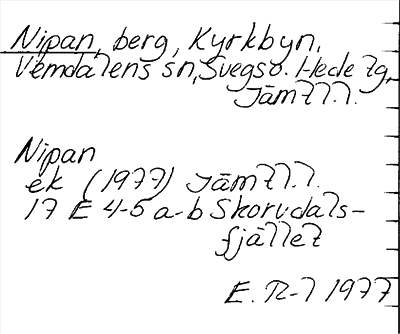 Nipan, berg, Kyrkbyn,
Vemdalens sn, Svegs o. Hede tg,
Jämtl.l.
Nipan
ek (1977) Jämtl.l.
17 E 4-5 a-b Skorvdals-
fjället
E. R-l 1977